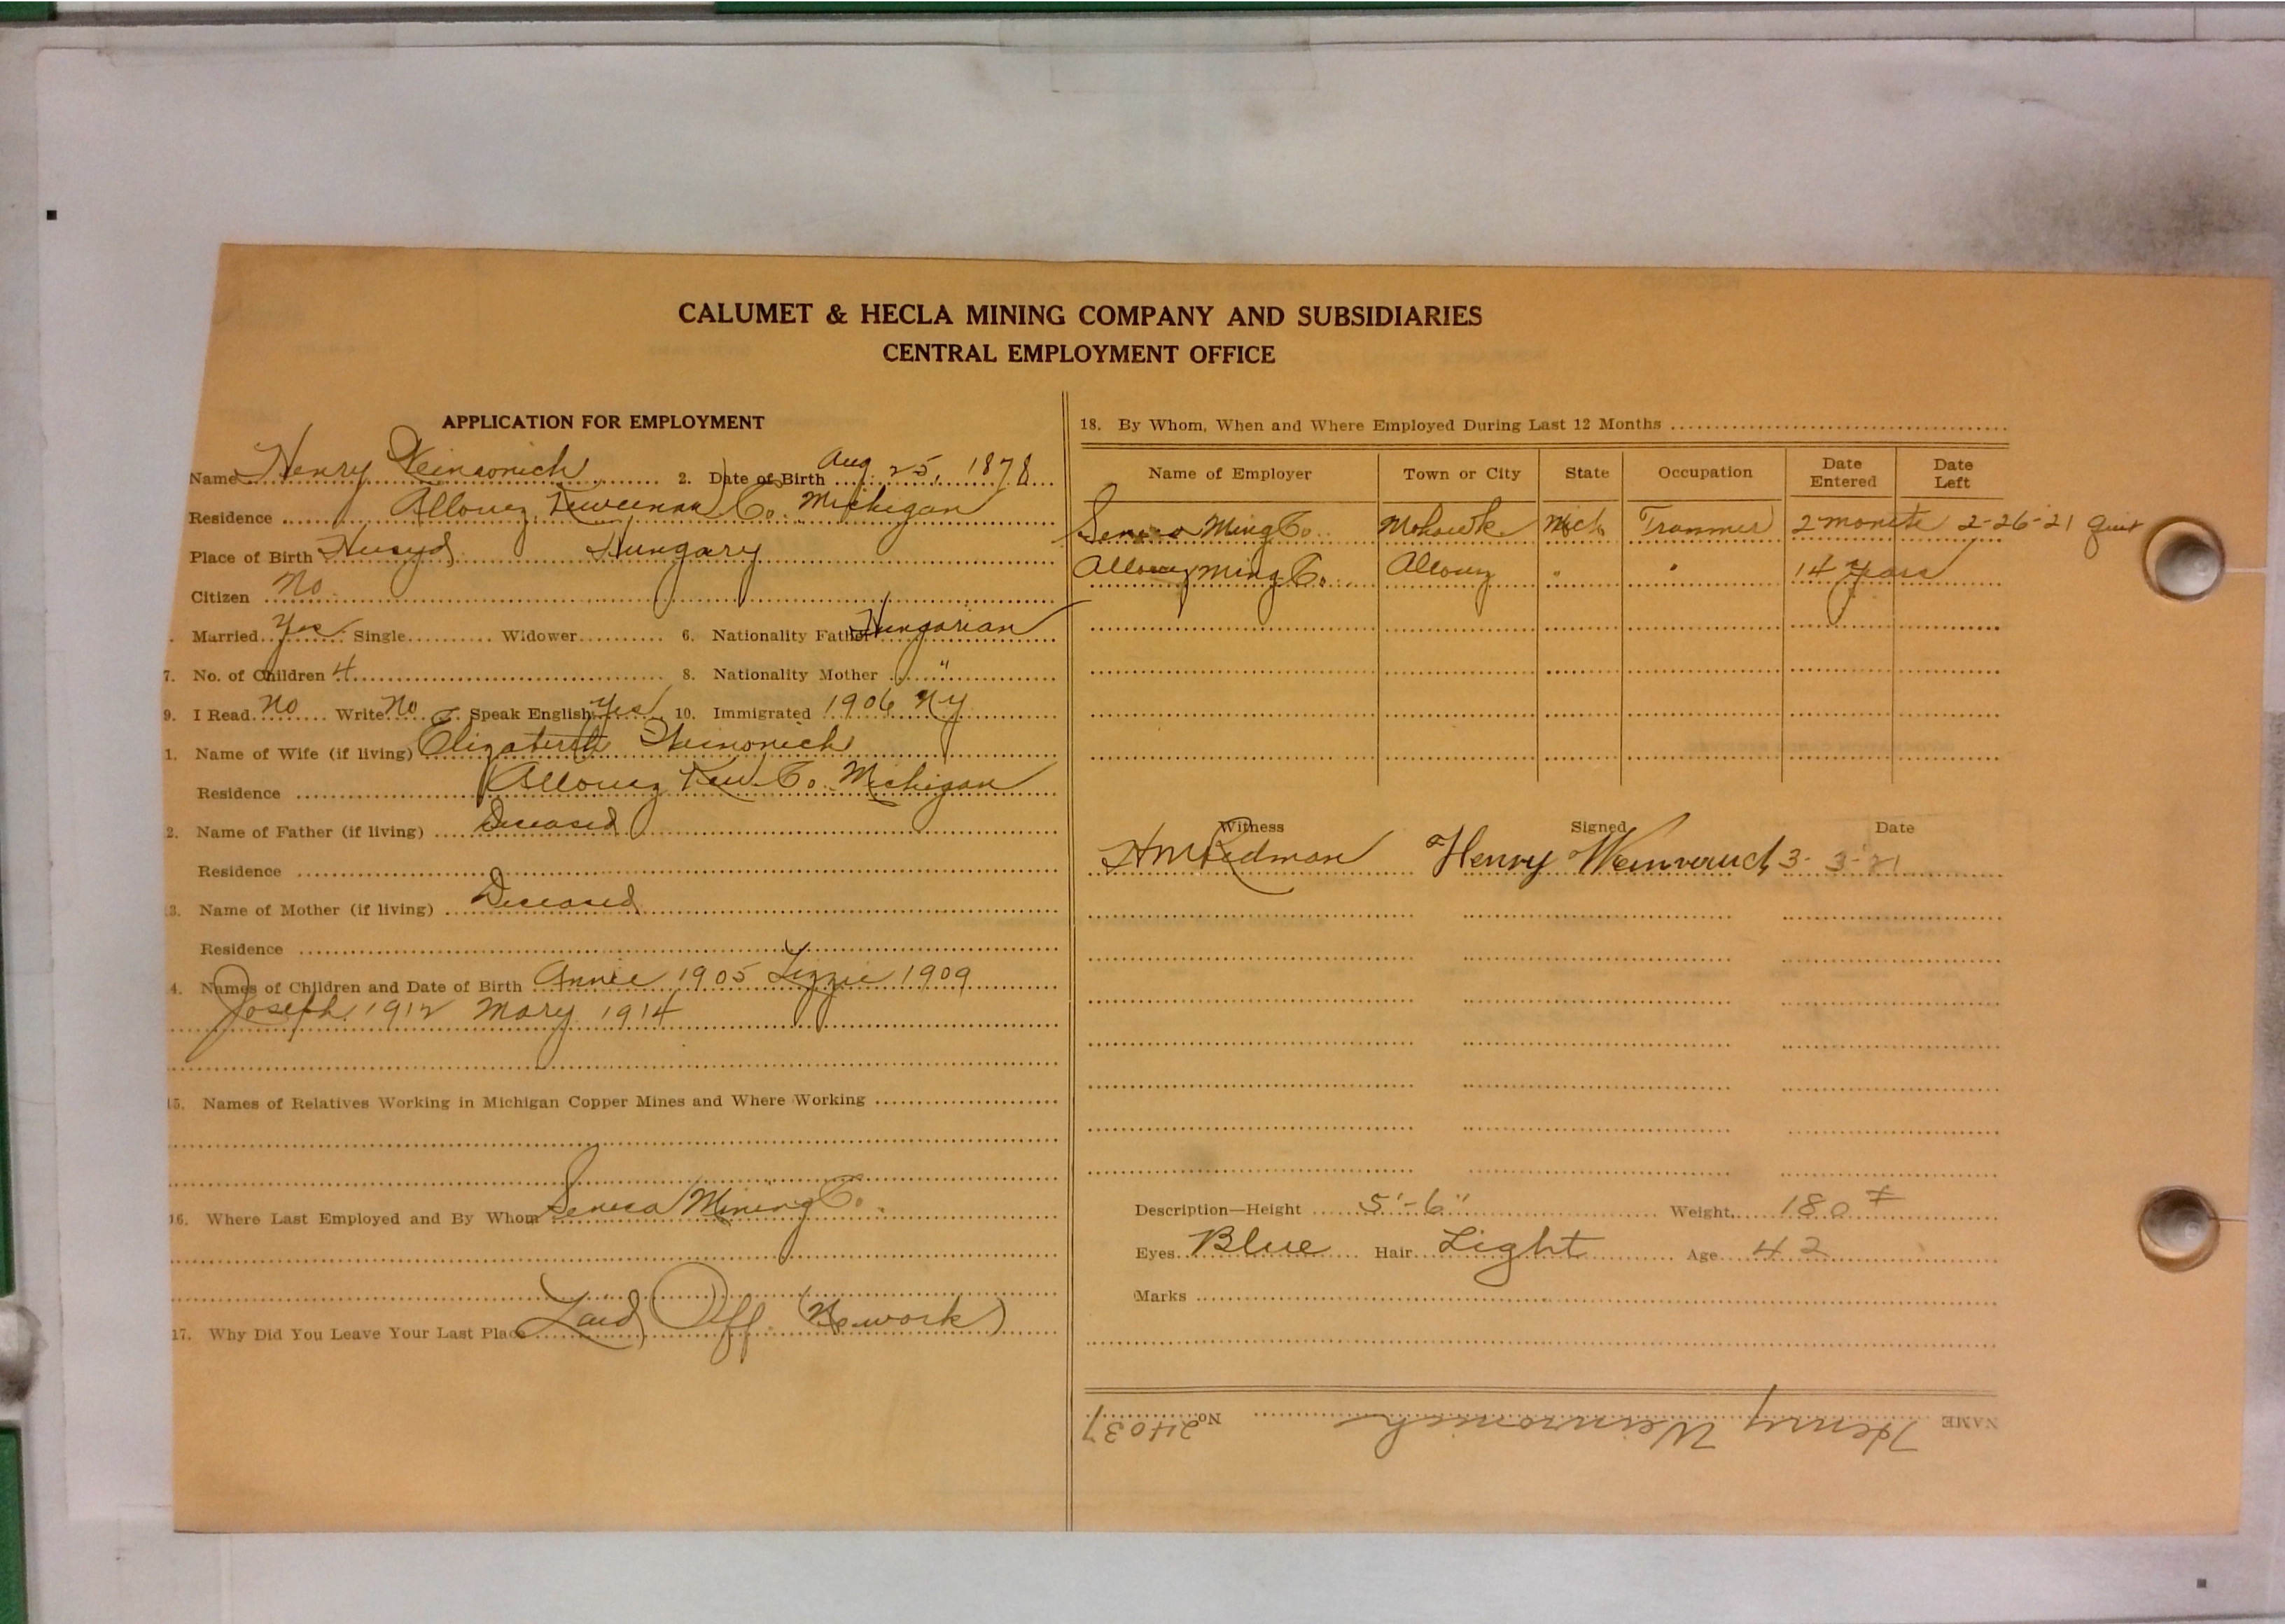 CALUMET & HECLA MINING COMPANY AND SUBSIDIARIES
CENTRAL EMPLOYMENT OFFICE
APPLICATION FOR EMPLOYMENT
Name Henry 2. Date of Birth Aug. 25, 1878
Residence Allouez Keweenaw Co. Michigan
Place of Birth Hungary
Citizen No
Married Yes Single Widower 6. Nationality Father Hungarian
7. No. of Children 4 8. Nationality Mother "
9. I Read No Write No Speak English Yes 10. Immigrated 1906 NY
1. Name of Wife (if living) Elizabeth
Residence Allouez Kew. Co. Michigan
2. Name of Father (if living) Deceased
Residence
3. Name of Mother (if living) Deceased
Residence
4. Names of Children and Date of Birth Annie 1905 Lizzie 1909
Joseph 1912 Mary 1914
15. Names of Relatives Working in Michigan Copper Mines and Where Working
16. Where Last Employed and By Whom Seneca Mining Co.
17. Why Did You Leave Your Last Place Laid Off (No work)
18. By Whom, When and Where Employed During Last 12 Months
Name of Employer Town or City State Occupation Date Entered Date Left
Seneca Ming Co. Mohawk Mich Trammer 2 months 2-26-21 Quit
Allouez Ming Co. Allouez " " 14 years
Witness Signed Date
Henry 3-3-21
Description—Height 5'-6" Weight 180 #
Eyes Blue Hair Light Age 42
Marks
NAME Henry No. 24037